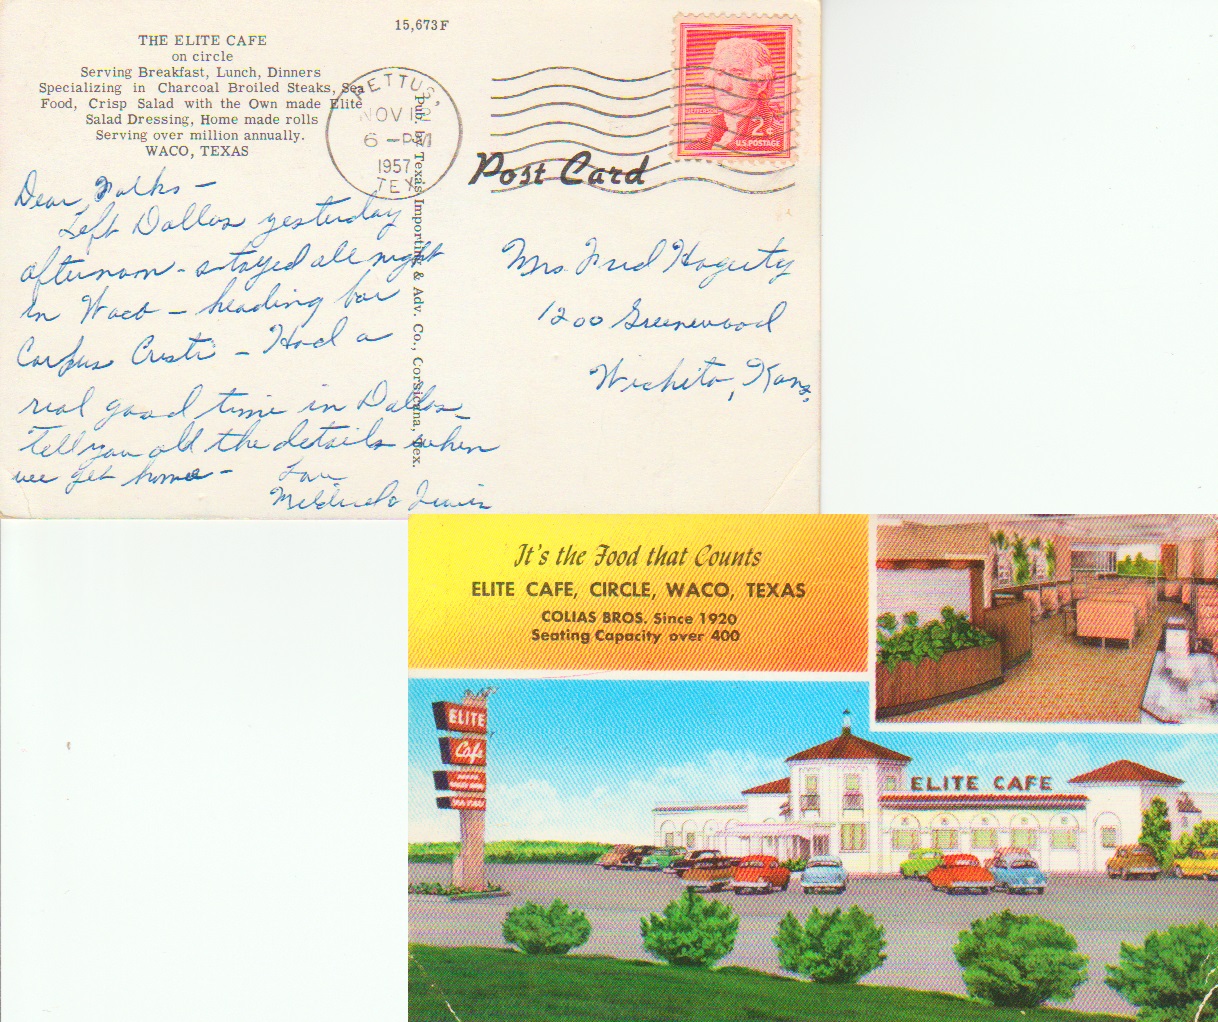 15,673F
THE ELITE CAFE
on circle
Serving Breakfast, Lunch, Dinners
Specializing in Charcoal Broiled Steaks, Sea
Food, Crisp Salad with the Own made Elite
Salad Dressing, Home made rolls
Serving over million annually.
WACO, TEXAS
PETTUS,
NOV 12
6 - PM
1957
TEX
2¢
U.S. POSTAGE
Post Card
Pub. by Texas Importing & Adv. Co., Corsicana, Tex.
Dear Folks -
Left Dallas yesterday
afternoon - stayed all night
in Waco - heading for
Corpus Cristi - Had a
real good time in Dallas -
Tell you all the details when
we get home - Love
Mildred &
Mrs. Fred Hogerty
1200 Greenwood
Wichita, Kans.
It's the Food that Counts
ELITE CAFE, CIRCLE, WACO, TEXAS
COLIAS BROS. Since 1920
Seating Capacity over 400
ELITE
Cafe
ELITE CAFE